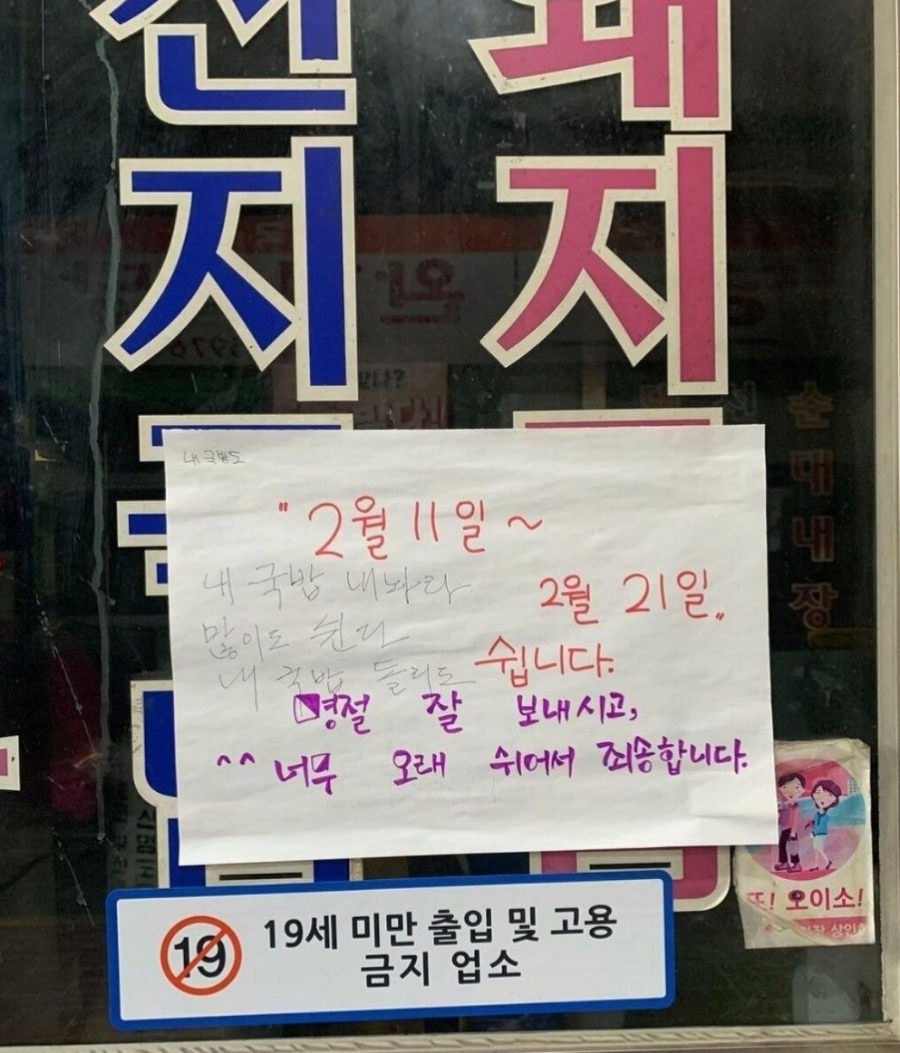 지
돼지
순대내장
내 국밥도
" 2월 11일 ~
2월 21일 „
쉽니다.
내 국밥 내놔라
많이도 쉰다
내 국밥 돌리도
명절 잘 보내시고,
^^ 너무 오래 쉬어서 죄송합니다.
19 19세 미만 출입 및 고용
금지 업소
또! 오이소!